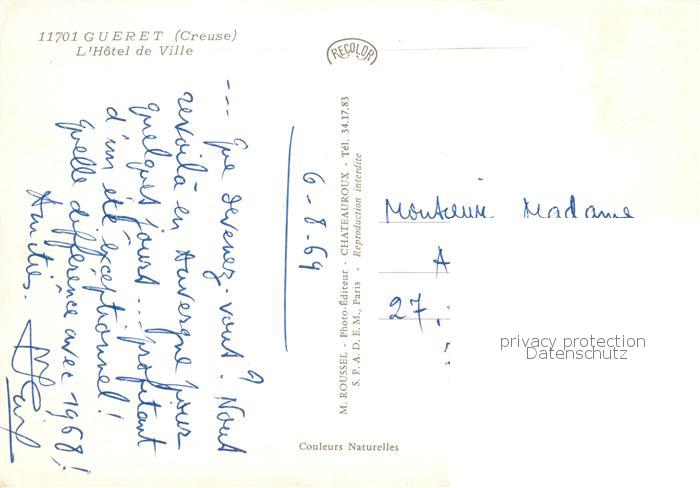 11701 GUERET (Creuse)
L'Hôtel de Ville
RECOLOR
--- Que devenez-vous ? Nous
revoilà en Auvergne pour
quelques jours... profitant
d'un été exceptionnel !
quelle différence avec 1968 !
Amitiés.
6-8-69
M. ROUSSEL - Photo-Éditeur - CHATEAUROUX - Tél. 34.17.83
S. P. A. D. E. M., Paris - Reproduction interdite
Monsieur Madame
A
27,
privacy protection
Datenschutz
Couleurs Naturelles